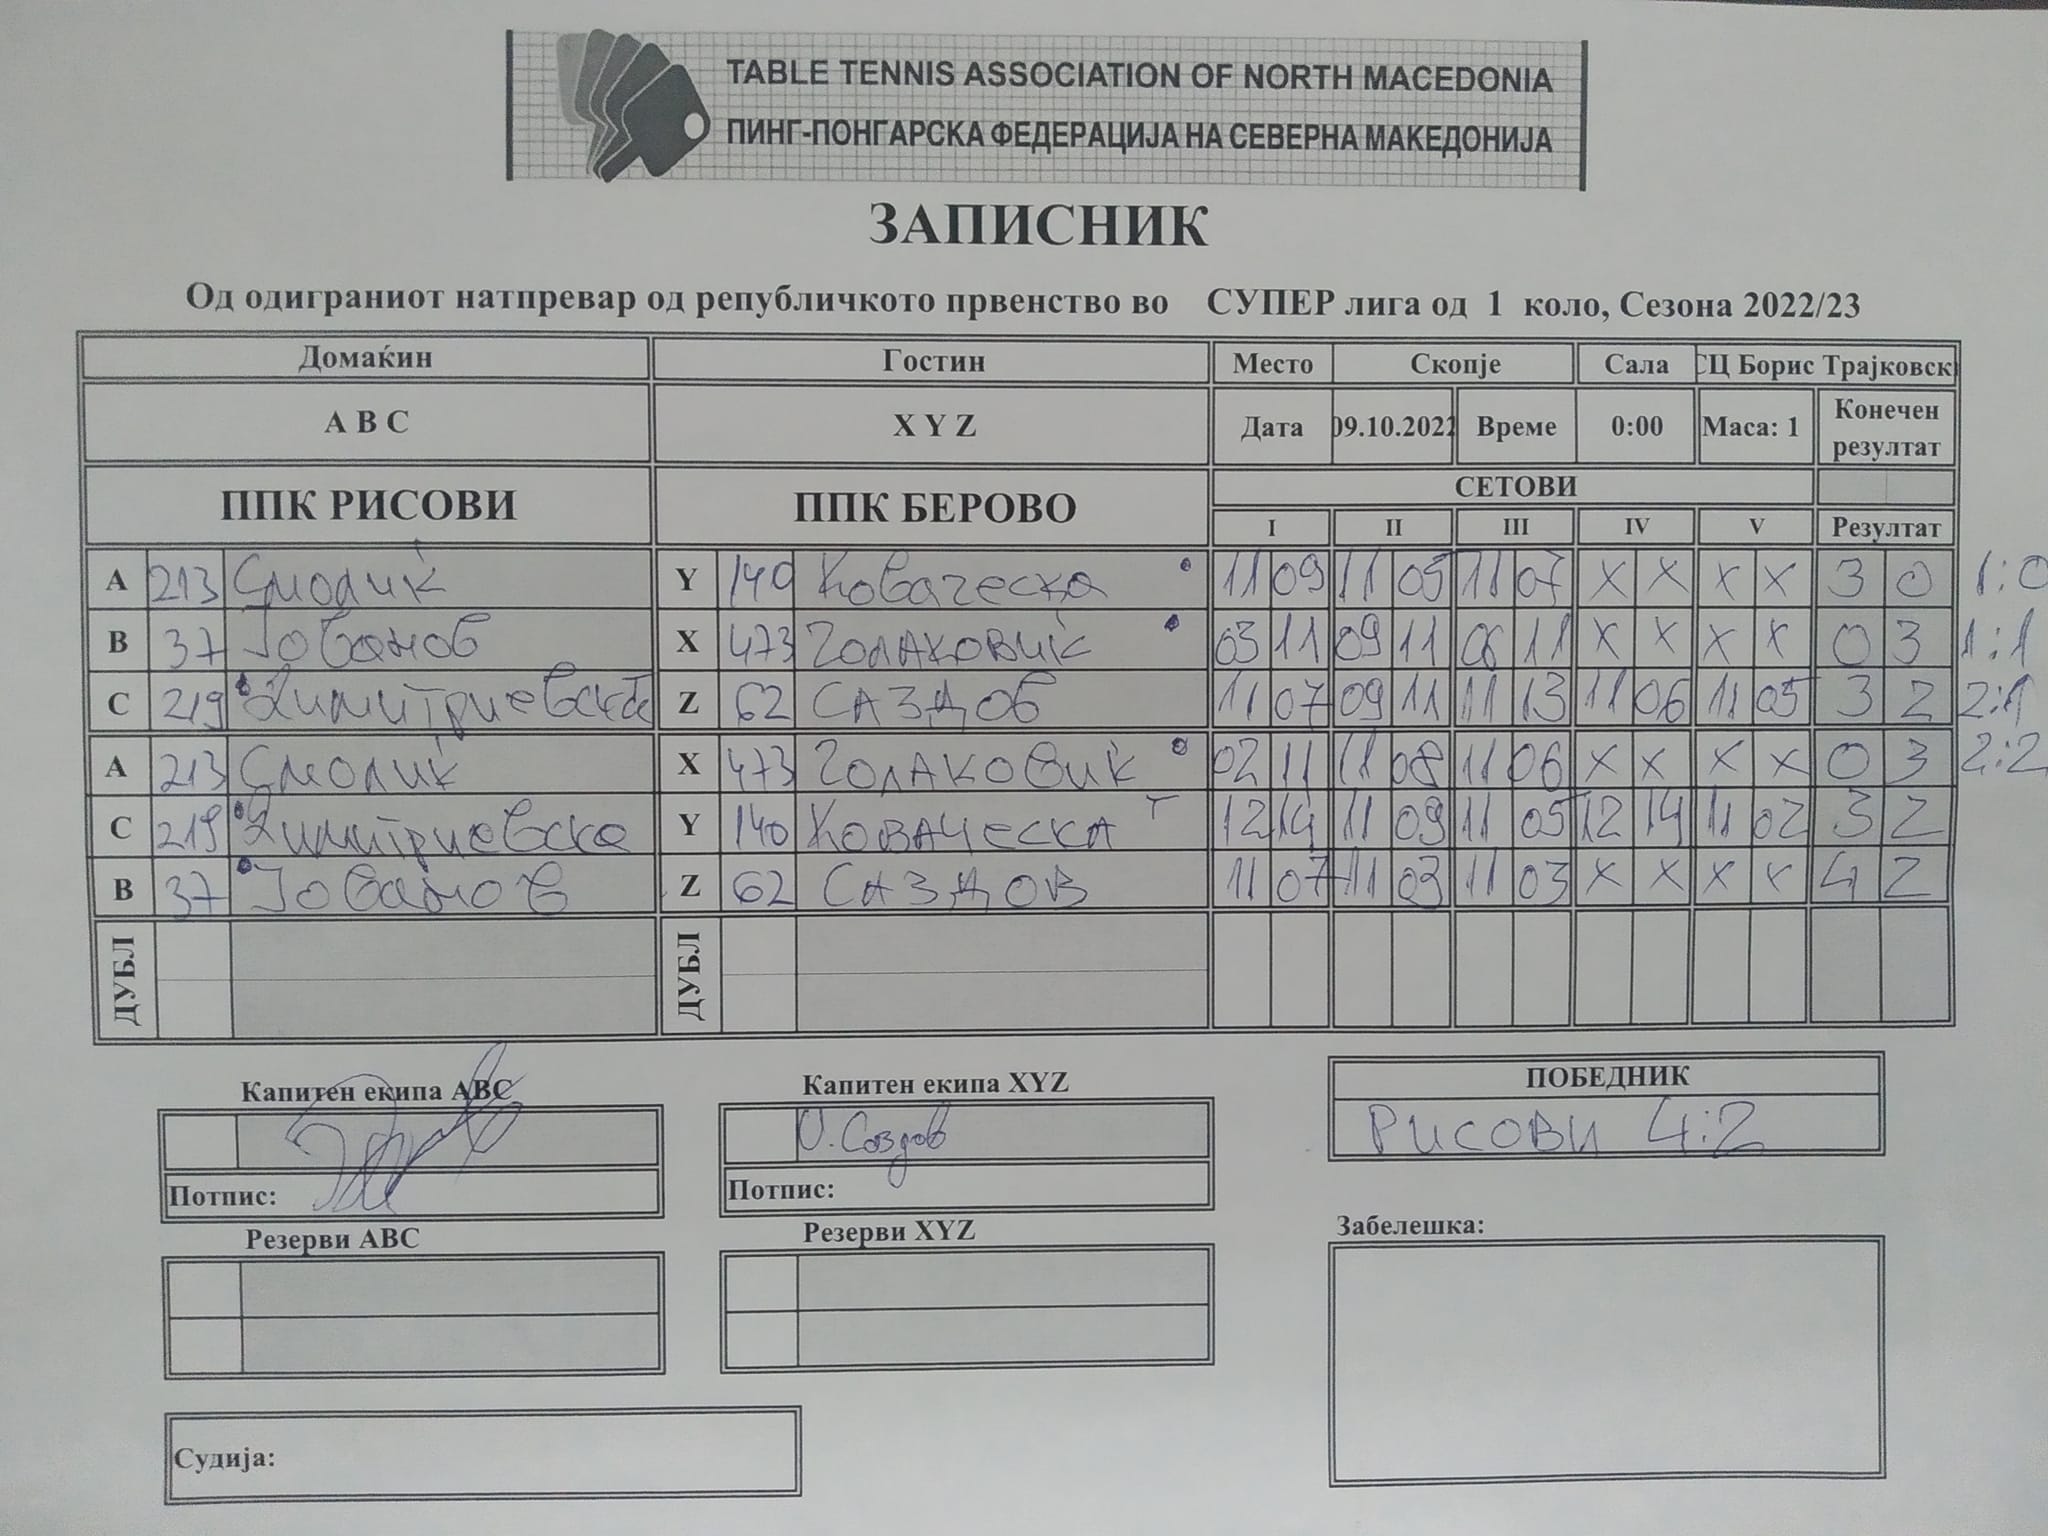 TABLE TENNIS ASSOCIATION OF NORTH MACEDONIA
ПИНГ-ПОНГАРСКА ФЕДЕРАЦИЈА НА СЕВЕРНА МАКЕДОНИЈА
ЗАПИСНИК
Од одиграниот натпревар од републичкото првенство во СУПЕР лига од 1 коло, Сезона 2022/23
Домаќин Гостин Место Скопје Сала СЦ Борис Трајковск
A B C X Y Z Дата 09.10.2022 Време 0:00 Маса: 1 Конечен резултат
ППК РИСОВИ ППК БЕРОВО СЕТОВИ
I II III IV V Резултат
A 213 Смолиќ Y 140 Коваческа 11 09 11 05 11 07 X X X X 3 0 1:0
B 37 Јованов X 473 Голаковиќ 03 11 09 11 08 11 X X X X 0 3 1:1
C 219 Димитриевска Z 62 САЗДОВ 11 07 09 11 11 13 11 06 11 05 3 2 2:1
A 213 Смолиќ X 473 Голаковиќ 02 11 11 08 11 06 X X X X 0 3 2:2
C 219 Димитриевска Y 140 КОВАЧЕСКА T 12 14 11 09 11 05 12 14 11 02 3 2
B 37 Јованов Z 62 САЗДОВ 11 07 11 03 11 03 X X X X 4 2
ДУБЛ ДУБЛ
Капитен екипа ABC Капитен екипа XYZ ПОБЕДНИК
Саздов РИСОВИ 4:2
Потпис: Потпис:
Резерви ABC Резерви XYZ Забелешка:
Судија: